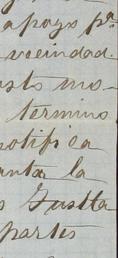 apoyo pª
vecindad.
usto mo-
termino
notifica
anta la
s Justta
partes